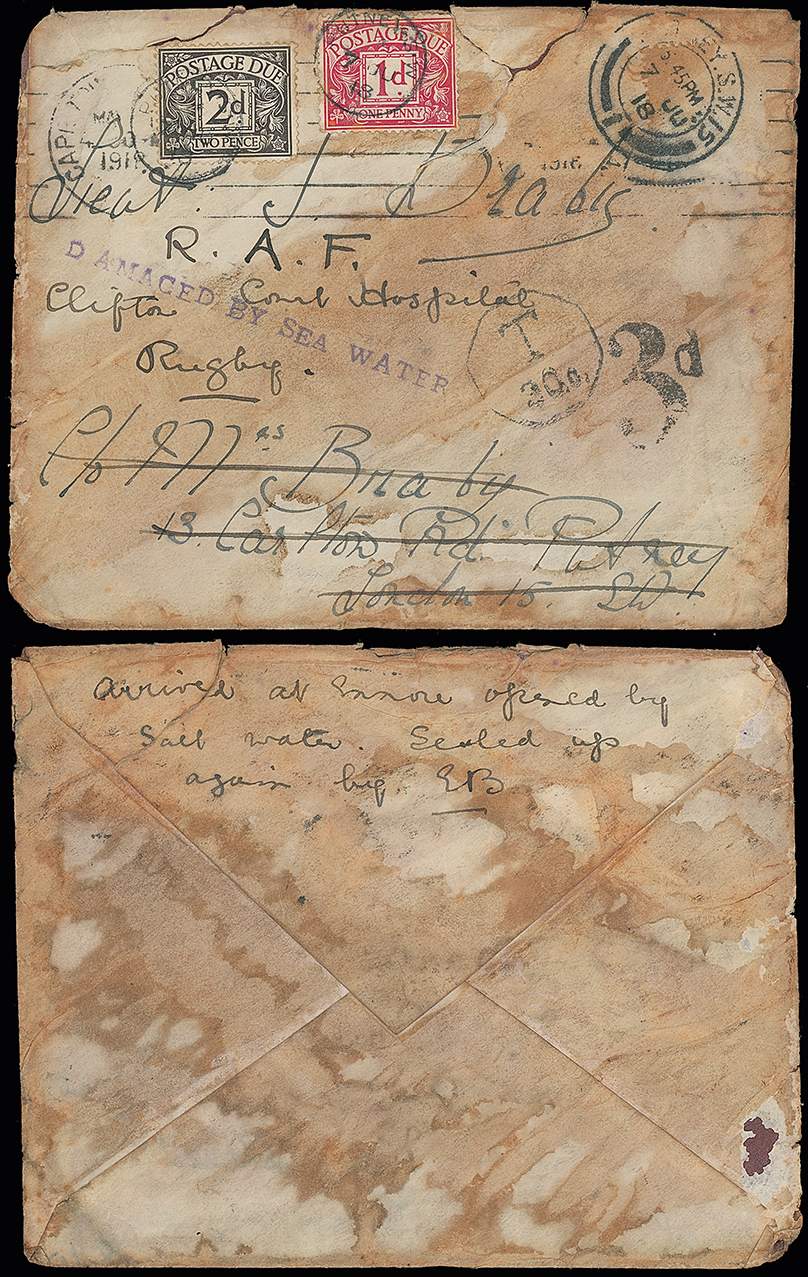 POSTAGE DUE
2d
TWO PENCE
POSTAGE DUE
1d
ONE PENNY
S.W.15
5.45PM
7 JU
18
1918
Lieut. J Braby
R. A. F.
DAMAGED BY SEA WATER
Clifton Court Hospital
Rugby.
T
30c.
3d
C/o Mrs Braby
13. Carlton Rd. Putney
London 15. SW.
Arrived at Enmore opened by
Salt water. Sealed up
again by EB